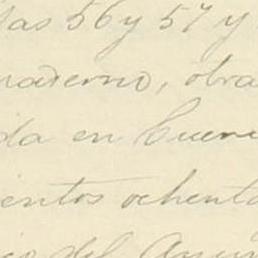 las 56 y 57 y
uaderno, obra
da en Cuen
ientos ochenta
del